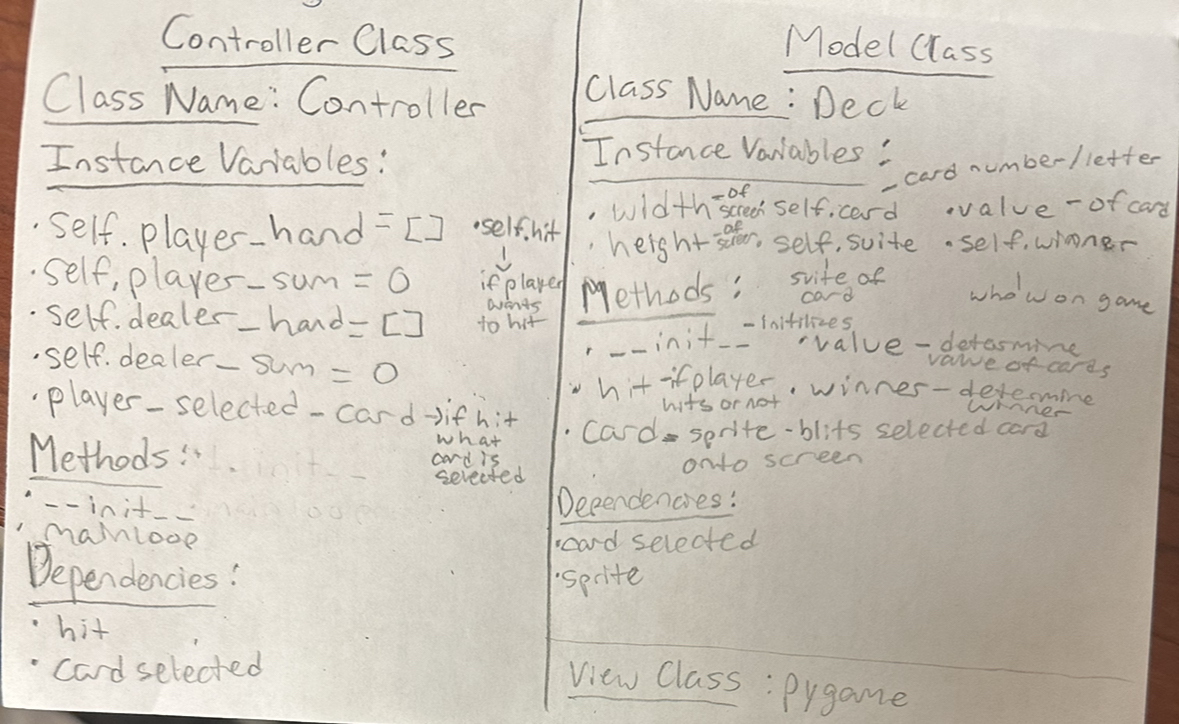 Controller Class
Class Name: Controller
Instance Variables:
· self.player_hand = []
· self.hit
if player
wants
to hit
· self.player_sum = 0
· self.dealer_hand = []
· self.dealer_sum = 0
· player_selected_card → if hit
what
card is
selected
Methods:
· __init__
· mainloop
Dependencies:
· hit
· card selected
Model Class
Class Name: Deck
Instance Variables:
- card number/letter
· width - of screen self.card · value - of card
· height - of screen self.suite · self.winner
suite of
card
who won game
Methods:
· __init__ - initilizes
· value - determine
value of cards
· hit - if player
hits or not
· winner - determine
winner
· card_sprite - blits selected card
onto screen
Dependencies:
· card selected
· sprite
View Class : pygame